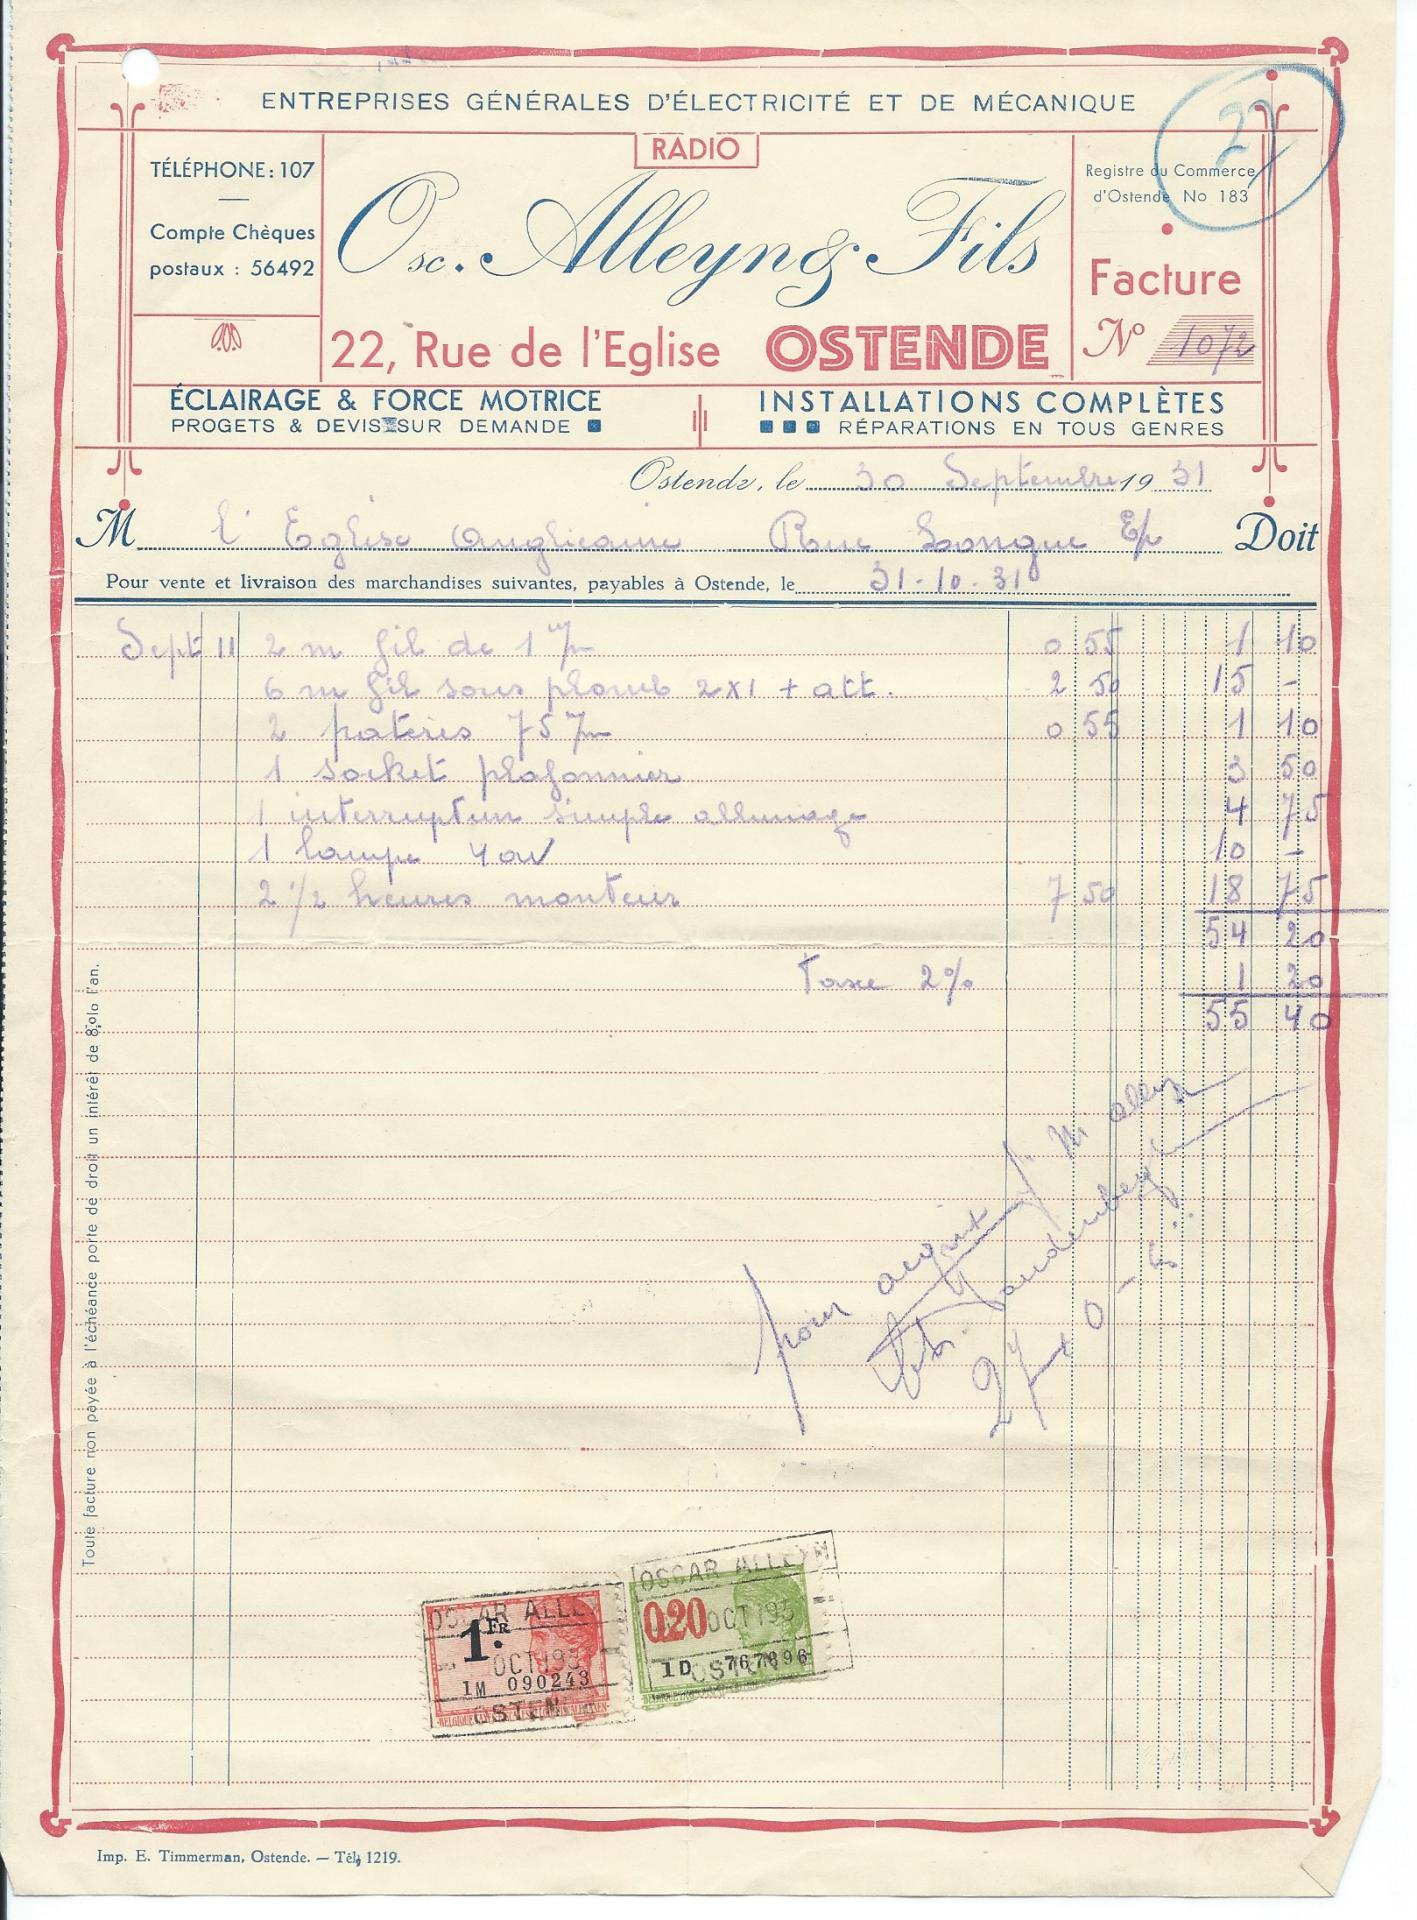 27
ENTREPRISES GÉNÉRALES D'ÉLECTRICITÉ ET DE MÉCANIQUE
RADIO
TÉLÉPHONE: 107
Compte Chèques
postaux : 56492
Osc. Alleyn & Fils
22, Rue de l'Eglise OSTENDE
Registre du Commerce
d'Ostende No 183
Facture
No 1072
ÉCLAIRAGE & FORCE MOTRICE
PROGETS & DEVIS SUR DEMANDE
INSTALLATIONS COMPLÈTES
RÉPARATIONS EN TOUS GENRES
Ostende, le 30 Septembre 1931
M l'Eglise Anglicaine Rue Longue E/v Doit
Pour vente et livraison des marchandises suivantes, payables à Ostende, le 31-10-31
Sept 11 2 m fil de 1 m/m 0 55 1 10
6 m fil sous plomb 2x1 + att. 2 50 15 -
2 patères 75 m/m 0 55 1 10
1 socket plafonnier 3 50
1 interrupteur simple allumage 4 75
1 lampe 40W 10 -
2 1/2 heures monteur 7 50 18 75
54 20
Taxe 2% 1 20
55 40
Toute facture non payée à l'échéance porte de droit un intérêt de 8,olo l'an.
pour acquit
OSCAR ALLEYN
1 FR
OCT 193
1M 090243
OSTEN
OSCAR ALLEYN
0.20
OCT 193
1D 767896
OSTEN
Imp. E. Timmerman, Ostende. — Tél. 1219.